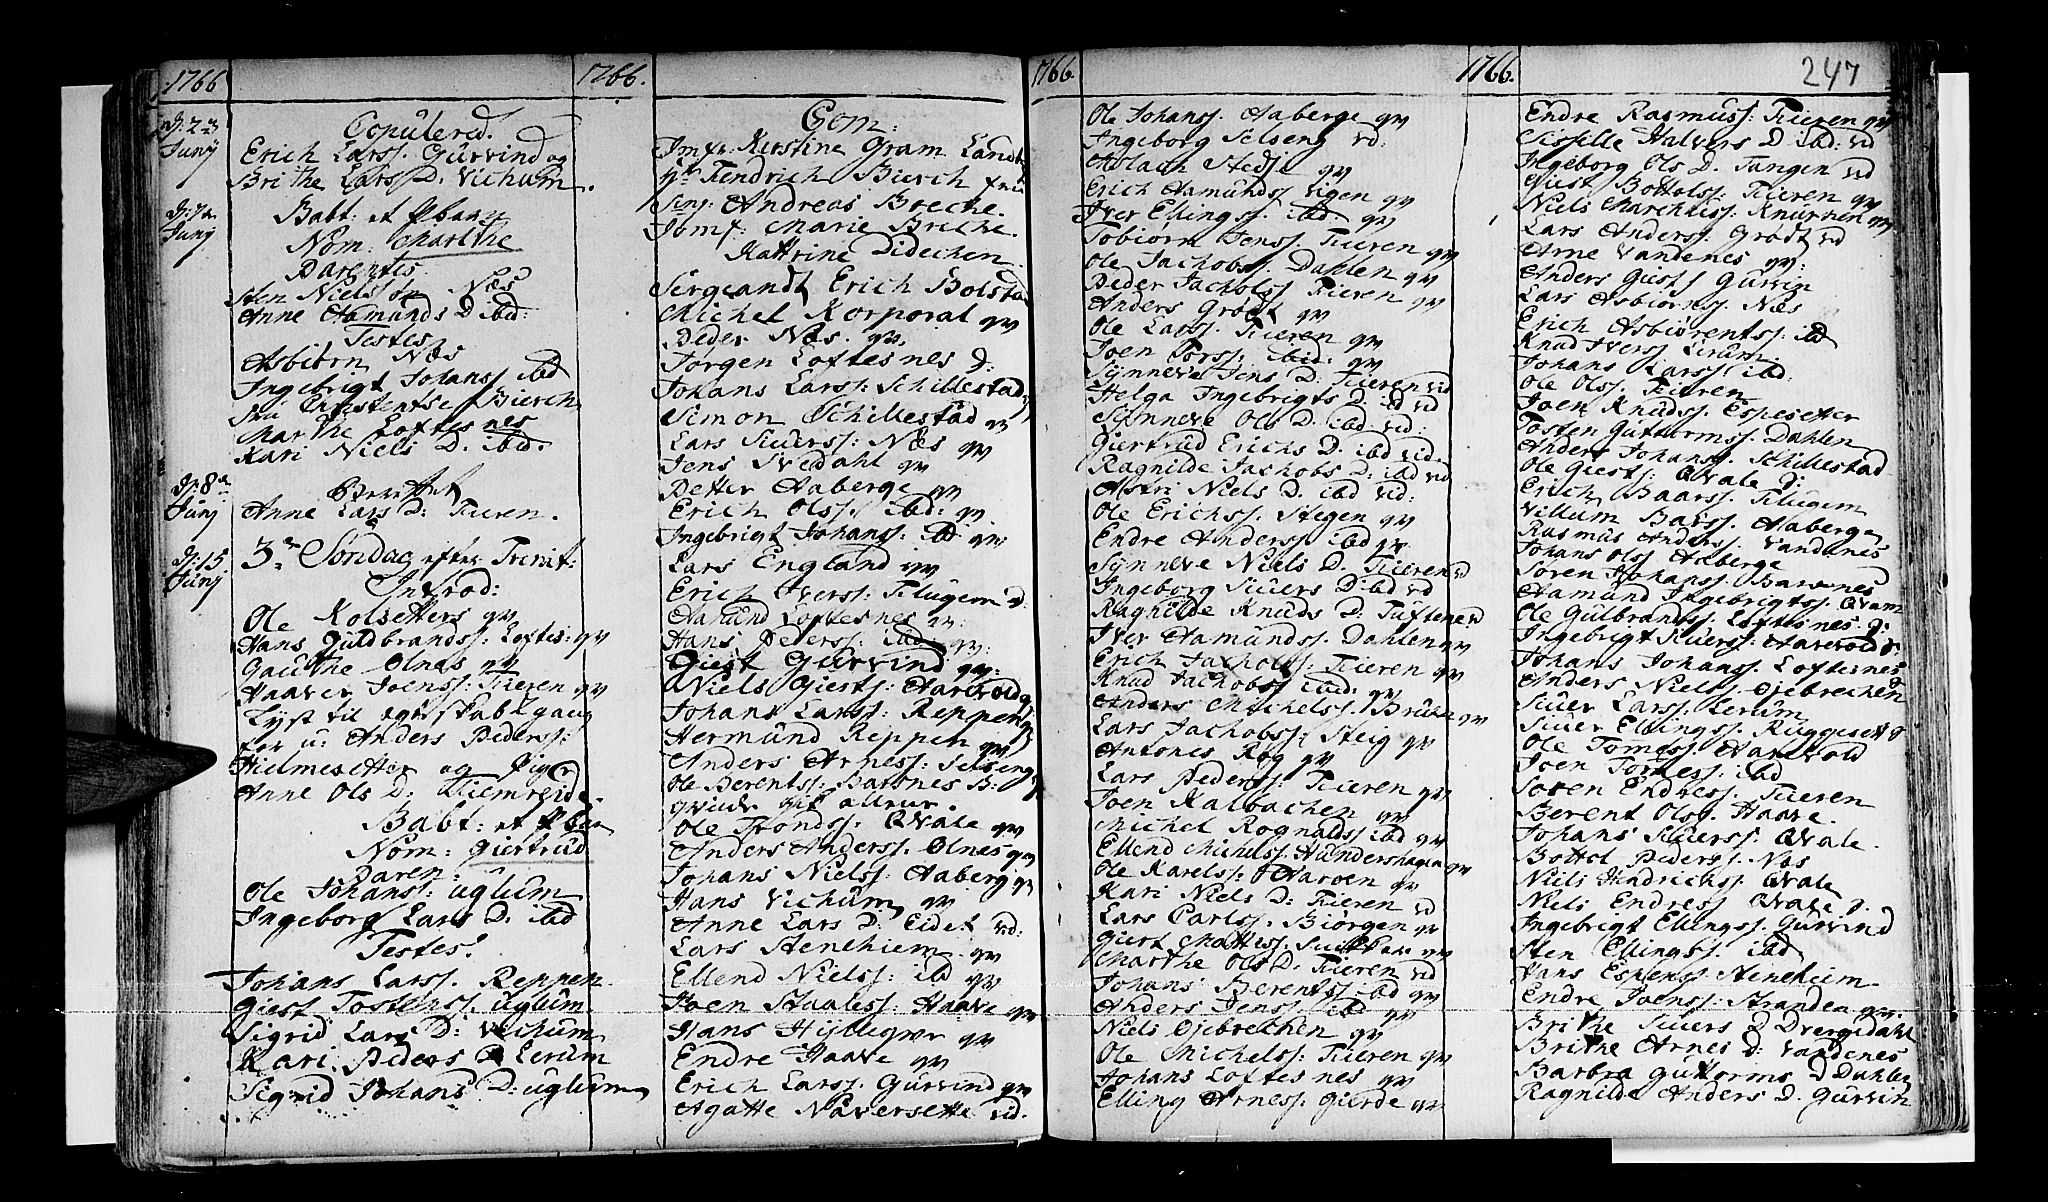 1766
d: 23
Junij
Copulered.
Erich Larss. Gurvind og
Brithe Lars D. Vichum.
d: 7de
Junij
Babt: et
Nom: Marthe
Parentes
Sten Niels Næs
Anne Aamunds D ibid:
Testes
Asbiørn Næs
Ingebrigt Johanss ibid
Biersch
Marthe Loftesnes
Kari Niels D. ibid.
d: 8de
Junij
Anne Lars D: Fieren.
d: 15.
Junij
3de Søndag efter Trenit:
Introd:
Ole Kolsetters qv
Hans Guldbrandss: Loftes: qv
Gauthe Olnæs qv
Haaver Joenss: Fieren qv
Lyst til Egteskab 1 gang
for u: Anders Peders:
Hielmesetter og Pigen
Anne Ols D:
Babt: et
Nom: Giertrud
Paren:
Ole Johans: Uglum
Ingeborg Lars D: ibid
Testes:
Johans Larss. Reppen
Giest Tostenss. Uglum
Sigrid Lars D: Vichum
Kari Peders D Lerum
Sigrid Johans D: Uglum
1766.
Gom:
Jmfr: Kerstine Gram Landt
Hr Hendrich Biersch
Sinj: Andreas Breche.
Jomf: Marie Breche.
Kattrine Didechen
Sergeandt Erich Bolstad
Michel Korporal qv
Peder Næs. qv.
Jørgen Loftesnes D:
Johans Larss: Schillestad
Simon Schillestad qv
Lars Siuerss: Næs qv
Jens Svedahl qv
Petter Aaberge qv
Erich Olss. ibid: qv
Ingebrigt Johanss. ibid qv
Lars England qv
Erich Iverss: Flugem D:
Aamund Loftesnes qv:
Hans Pederss: ibid: qv:
Giest Gurvind qv:
Niels Gierts: Aarevold q
Johans Larss: Reppen q
Hermund Reppen qv
Anders Arness: Selseng
Ole Berentss: Barsnes B:
Ole Tronds: Qvale qv
Anders Anderss. Olnes qv
Johans Nielss: Aaberg qv
Hans Vichum qv
Anne Lars D: Eidet vd:
Lars Stenehiem qv
Ellend Nielss: ibid qv
Joen Staaless: Haave qv
Hans Hyllegier qv
Endre Haave qv
Erich Larss. Gurvind qv
Agatte Navarsette vd.
1766.
Ole Johans: Aaberge qv
Ingeborg Selseng vd:
Aslach Stedje qv
Erich Aamundss Vigen qv
Iver Ellingss. ibid qv
Tobiørn Jenss: Fieren qv
Ole Jachobss: Dahlen qv
Peder Jachobss Fieren qv
Anders Grødt qv
Ole Larss: Fieren qv
Joen Torss: ibid: qv
Synneve Jens D: Fieren vd
Helga Ingebrigts D ibid vd
Synneve Ols D. ibid vd:
Giertrud Erichs D. ibid vd.
Ragnilde Jachobs D: ibid vd
Astri Niels D. ibid vd:
Ole Erichss: Stegen qv
Endre Anderss. ibid qv
Synneve Niels D. Fieren vd
Ingeborg Siuers D ibid vd
Ragnilde Knuds D: Tuftene vd
Iver Aamundss. Dahlen qv
Erich Jachobs: Fieren qv
Knud Jachobss ibid: qv
Anders Michelss: qv
Lars Jachobss: Steig qv
Antonis Røg qv
Lars Pederss: Fieren qv
Joen Kalbachen qv
Michel Rognaldss ibid qv
Ellend Michelss: Hundershagen qv
Ole Karelss: Haroen qv
Kari Niels D: Fieren vd
Lars Carlss. Biørgen qv
Giert Mattess: qv
Marthe Ols D: Fieren vd
Johans Berentss ibid qv
Anders Jenss: ibid qv
Niels Ojebrechen qv
Ole Michelss: Fieren qv
Johans Loftesnes qv
Elling Arness: Gierde qv
1766. 247
Endre Rasmuss: Fieren qv
Sissille Halvers D ibid: vd
Ingeborg Ols D. Tangen vd
Giest Bottolss: Fieren qv
Niels Marchuss. qv
Lars Anders: Grødt vd
Arne Vandenes qv:
Anders Giests Gurvin
Lars Asbiørnss. Næs
Erich Asbiørentss: ibid
Knud Iverss Lerum.
Johans Larss ibid:
Ole Olss: Fieren
Joen Knudss: Espesetter
Tosten Guttormss. Dahlen
Anders Johanss Schillestad
Ole Giest: Qvale q:
Erich Baarss: Flugem
Villum Barss. Aaberge
Rasmus Anders: Vandenes
Johans Olss Aaberge
Søren Johanss Barsnes
Aamund Ingebrigtss. Qvam
Ole Gulbrandss Loftesnes q:
Ingebrigt Siuers: Aarevold q
Johans Johanss Loftesnes
Anders Niels Ojebrechen
Siuer Larss. Lerum
Siuer Ellingss
Ole Tomess: Aarevold
Joen Tomess: ibid
Søren Endress: Fieren
Berent Olss. Haave.
Johans Siuerss: Qvale.
Bottol Pederss: Næs
Niels Hendrichss: Qvale
Niels Endress Qvale q.
Ingebrigt Ellingss. Gurvind
Sten Ellingss ibid
Hans Espenss. Stenehiem
Endre Joenss: Stranden qv.
Brithe Siuers D Dvergsdahl
Brithe Arnes D: Vandenes
Barbra Guttorms D Dahlen
Ragnilde Anders D. Gurvin